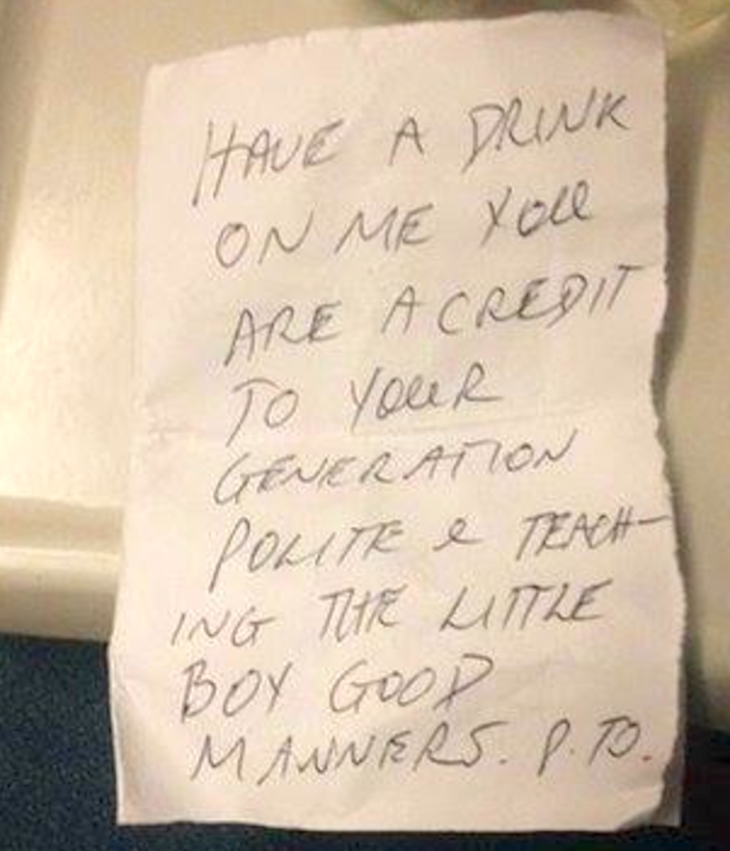 HAVE A DRINK
ON ME YOU
ARE A CREDIT
TO YOUR
GENERATION
POLITE & TEACH-
ING THE LITTLE
BOY GOOD
MANNERS. P.TO.